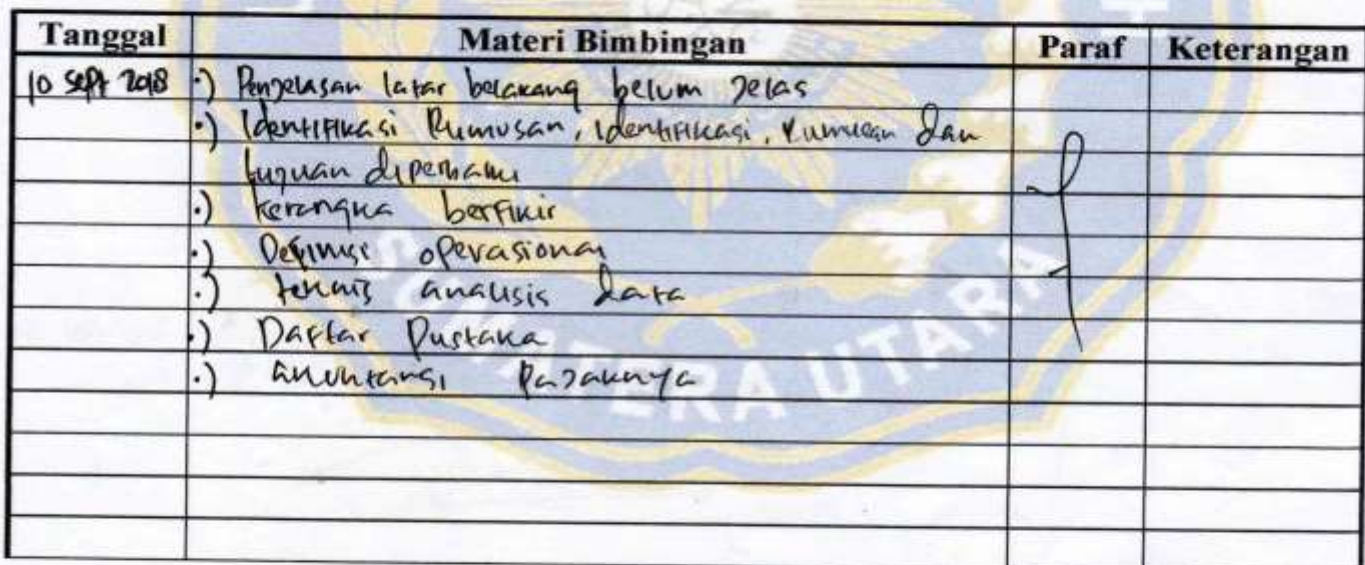 Tanggal Materi Bimbingan Paraf Keterangan
10 Sept 2018 •) Penjelasan latar belakang belum jelas
•) Identifikasi Rumusan, Identifikasi, Rumusan dan
tujuan diperbaiki
•) Kerangka berfikir
•) Definisi operasional
•) teknis analisis data
•) Daftar Pustaka
•) akuntansi Pajaknya
SUMATERA UTARA